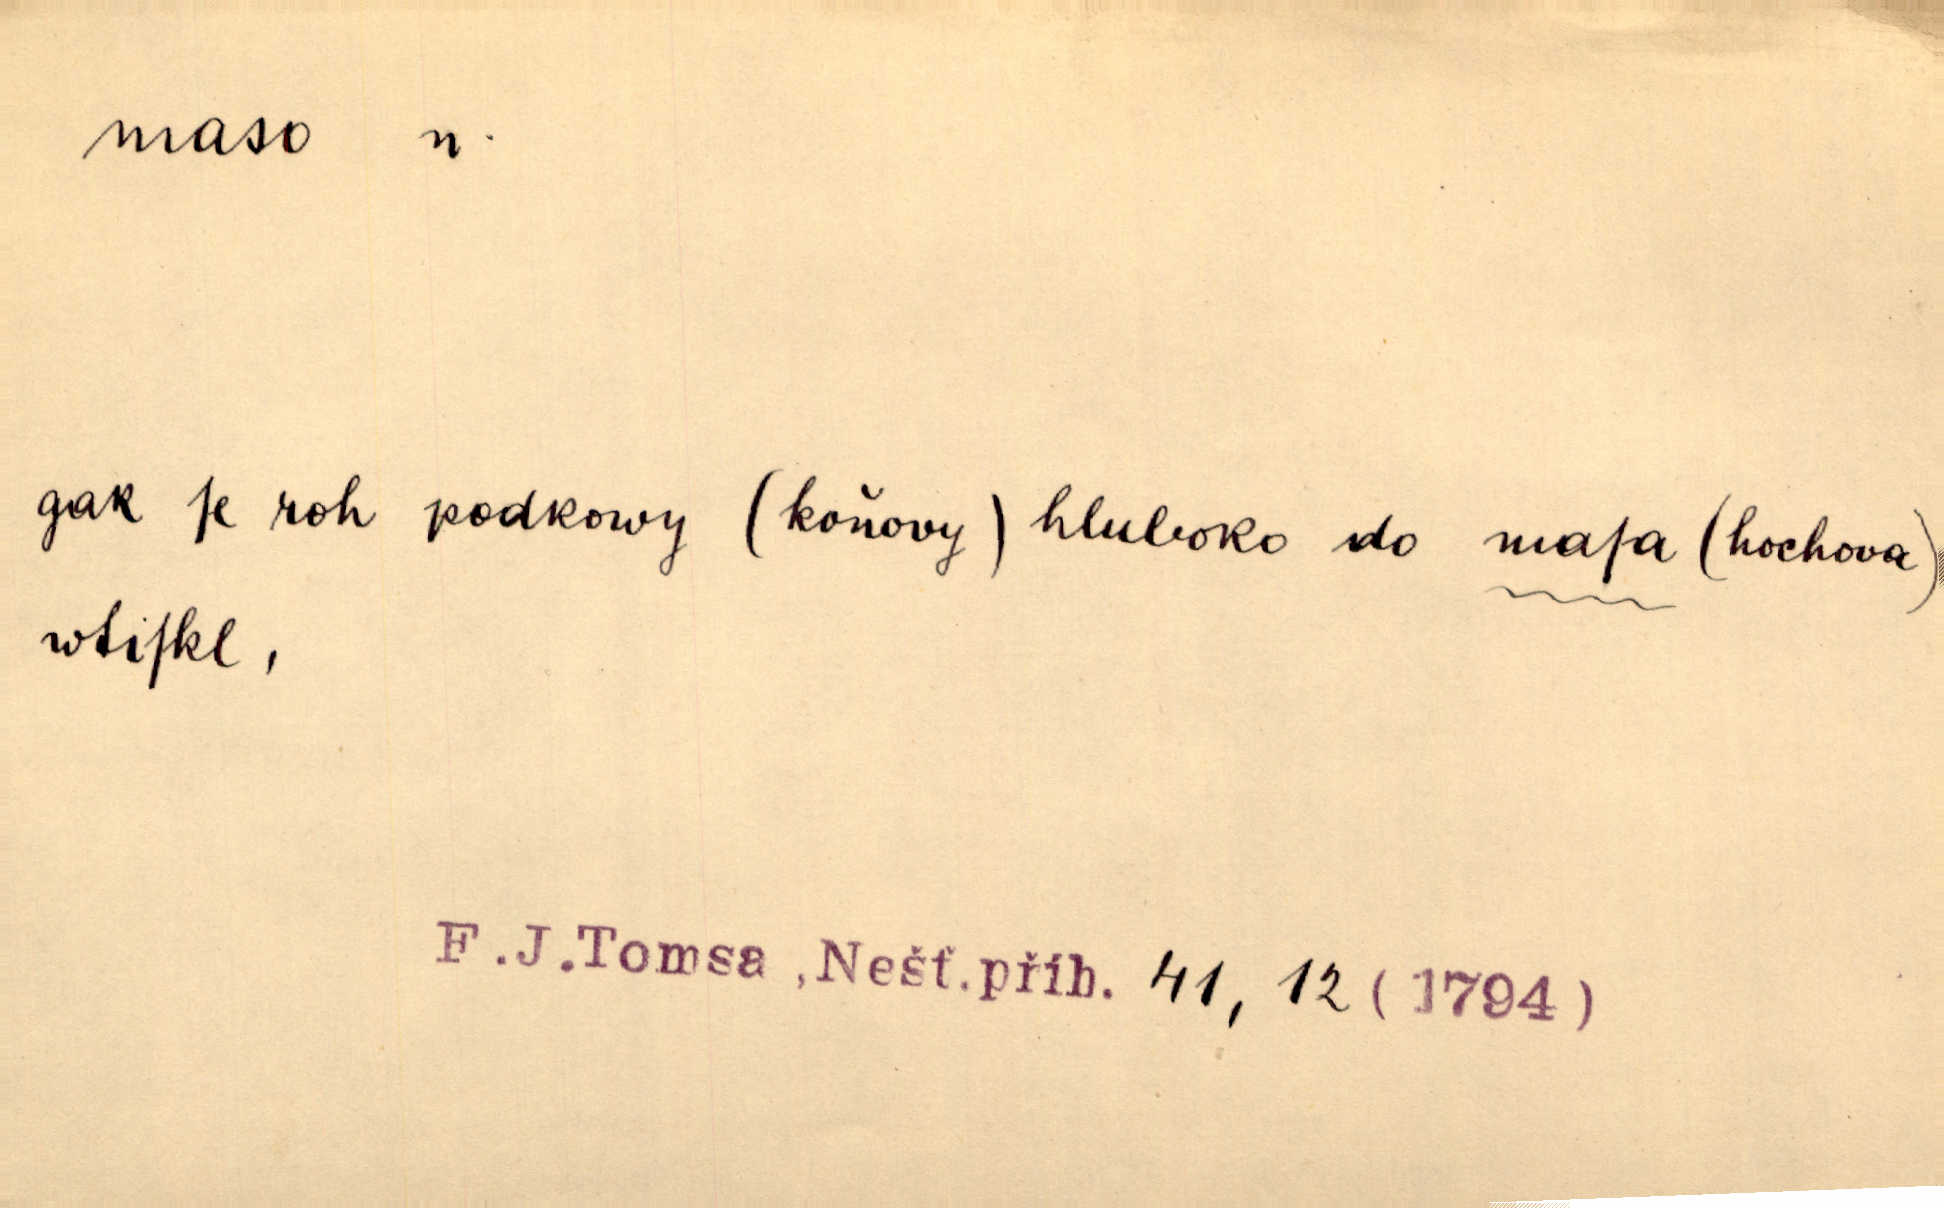 maso n.
gak ſe roh podkowy (koňovy) hluboko do maſa (hochova)
wtiſkl,
F.J.Tomsa,Nešť.příh. 41, 12 (1794)